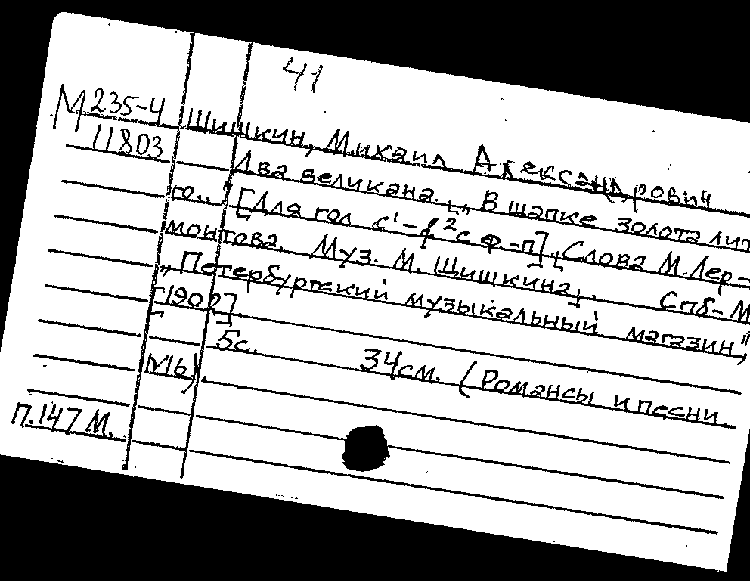 41
М 235-4 Шишкин, Михаил Александрович
11803 Два великана. „В шапке золота лит
го.." [Для гол с¹-f² с ф-п] [Слова М. Лер-
монтова. Муз. М. Шишкина]. Спб-М
„Петербургский музыкальный магазин",
[1902].
5с. 34см. (Романсы и песни.
№6).
П.147 М.